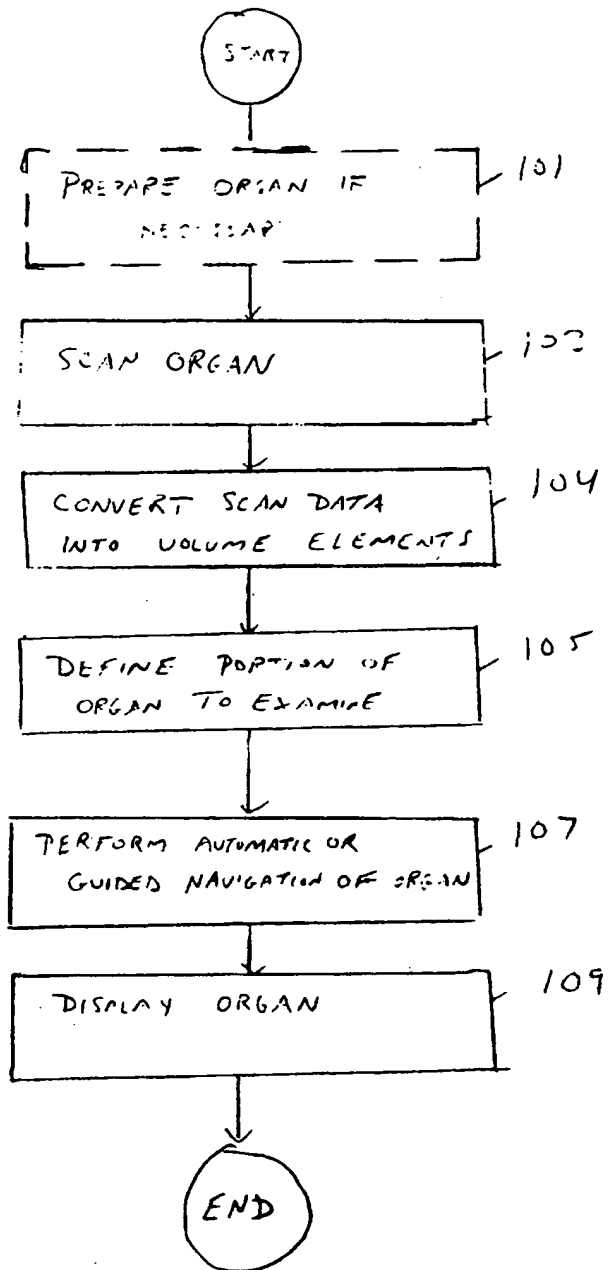 START
PREPARE ORGAN IF
101
SCAN ORGAN
103
CONVERT SCAN DATA
INTO VOLUME ELEMENTS
104
DEFINE PORTION OF
ORGAN TO EXAMINE
105
PERFORM AUTOMATIC OR
GUIDED NAVIGATION OF ORGAN
107
DISPLAY ORGAN
109
END